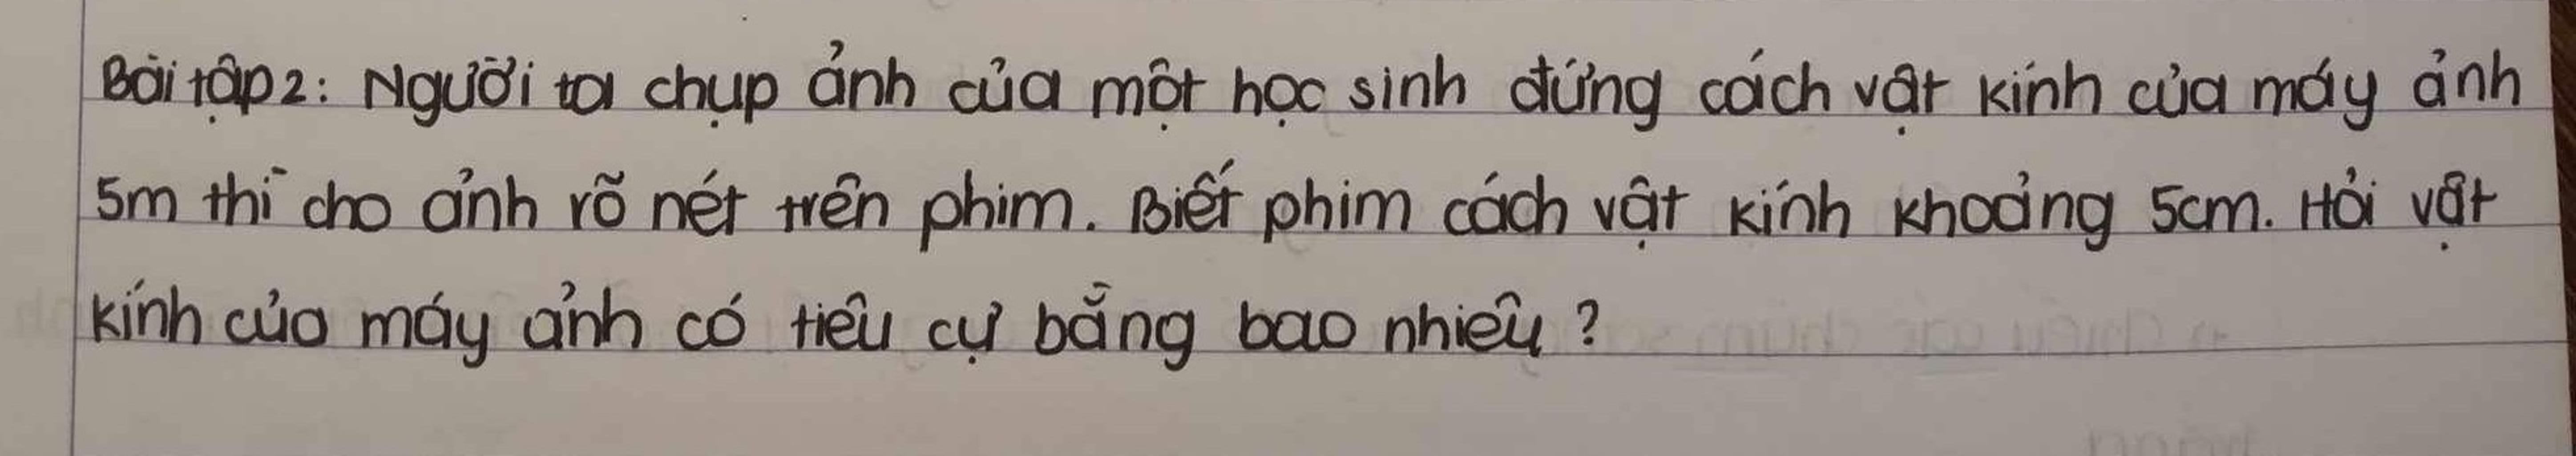 Bài tập 2: Người ta chụp ảnh của một học sinh đứng cách vật kính của máy ảnh
5m thì cho ảnh rõ nét trên phim. Biết phim cách vật kính khoảng 5cm. Hỏi vật
kính của máy ảnh có tiêu cự bằng bao nhiêu?